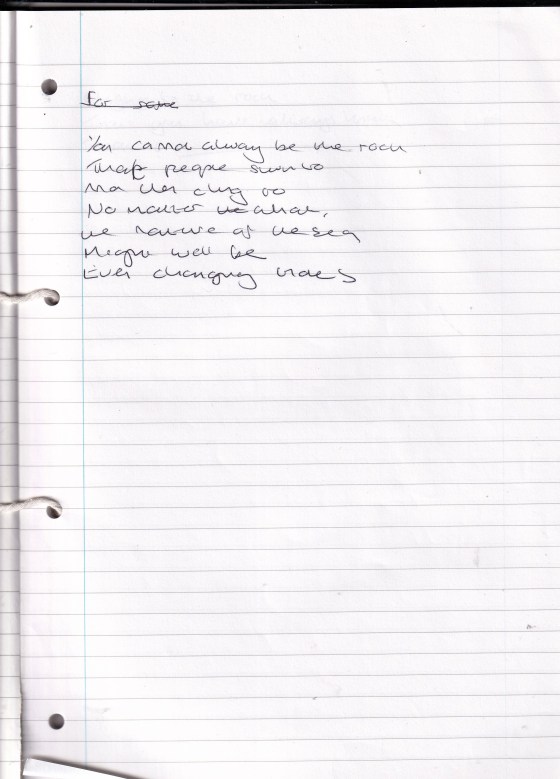 For some
You cannot always be the rock
That people swim to
cling to
No matter the
the nature of the sea
People will be
Ever changing tides